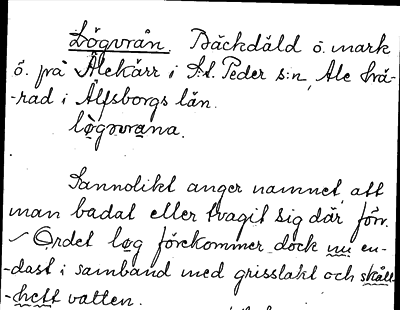 Lögvrån Bäckdåld ö. mark
ö. på Älekärr i S:t Peder s:n, Ale hä-
-rad i Älfsborgs län.
lo̤gvrana.
Sannolikt anger namnet att
man badat eller tvagit sig där förr.
Ordet log förekommer dock nu en-
-dast i samband med grisslakt och skåll-
-hett vatten.